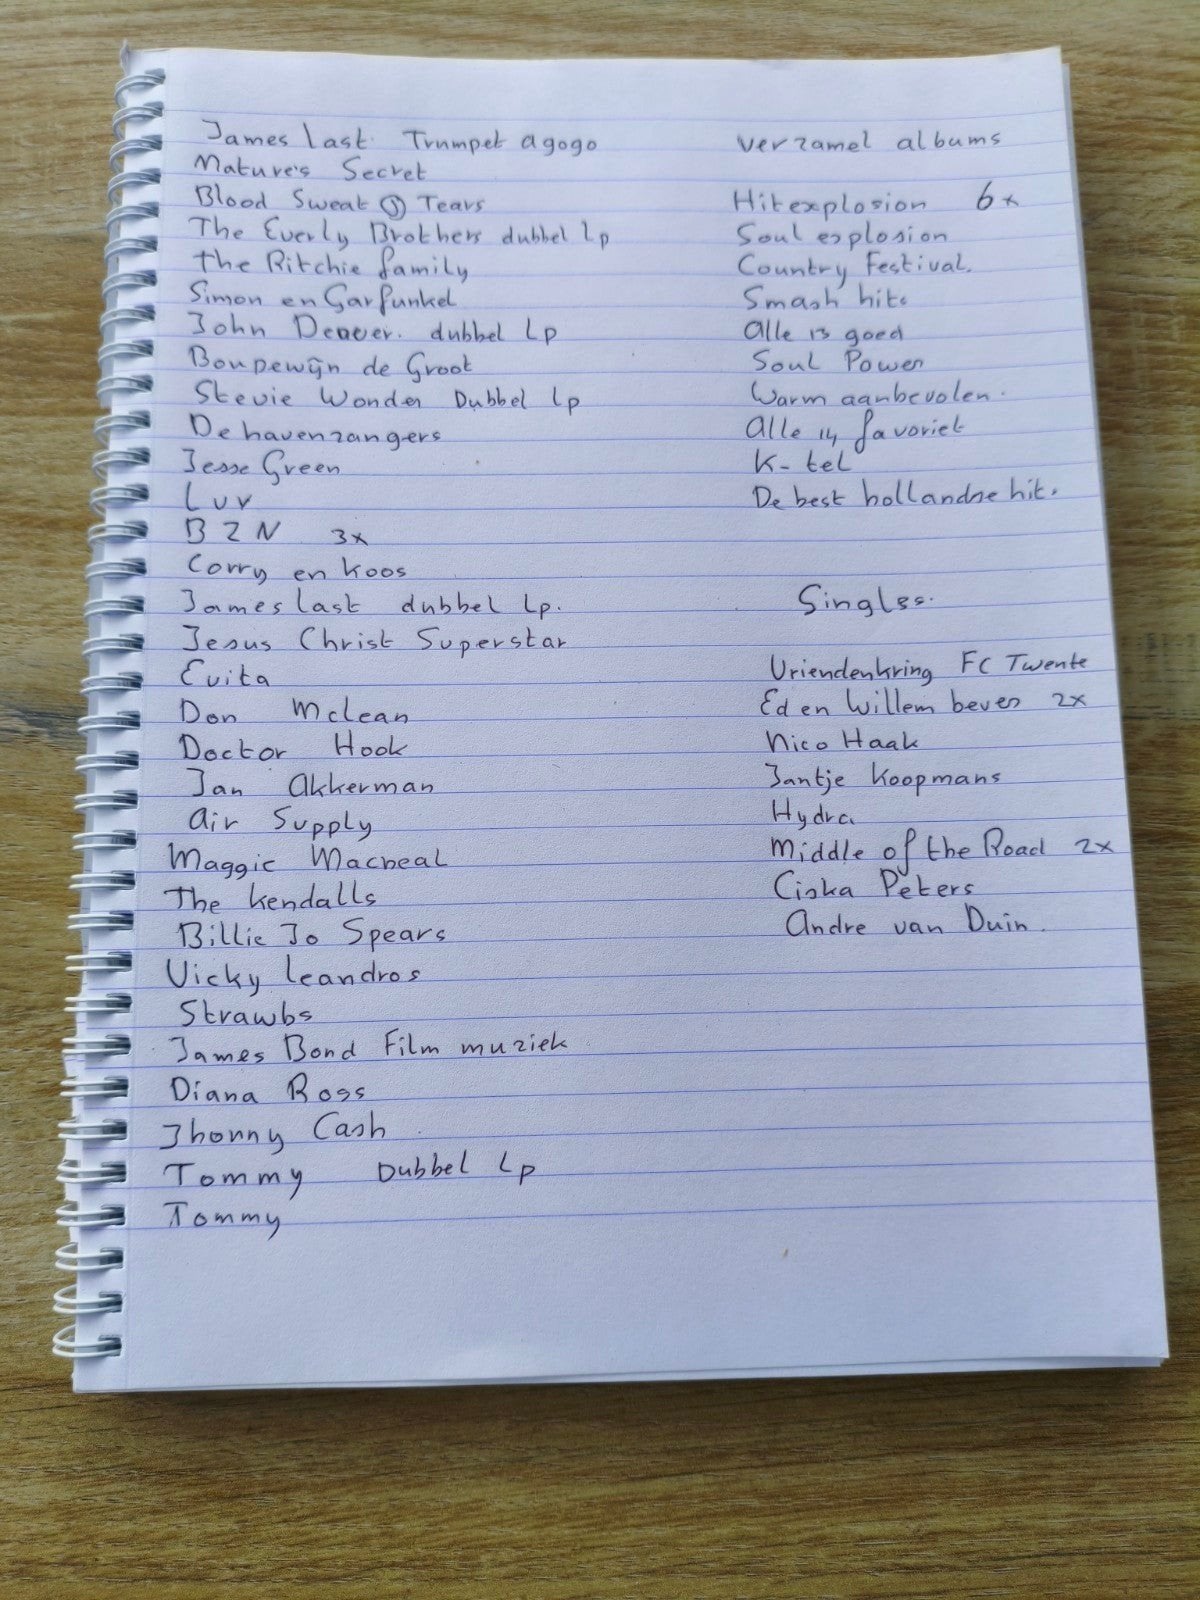 James Last. Trumpet agogo
Mature's Secret
Blood Sweat & Tears
The Everly Brothers dubbel Lp
the Ritchie family
Simon en Garfunkel
John Denver. dubbel Lp
Boudewijn de Groot
Stevie Wonder Dubbel Lp
De havenzangers
Jesse Green
Luv
BZN 3x
Corry en Koos
James Last dubbel Lp.
Jesus Christ Superstar
Evita
Don Mclean
Doctor Hook
Jan Akkerman
Air Supply
Maggie Macneal
The Kendalls
Billie Jo Spears
Vicky Leandros
Strawbs
James Bond Film muziek
Diana Ross
Jhonny Cash
Tommy Dubbel Lp
Tommy
verzamel albums
Hitexplosion 6x
Soul explosion
Country Festival.
Smash hits
Alle 13 goed
Soul Power
Warm aanbevolen.
Alle 14 favoriet
K-tel
De best hollandse hits
Singles.
Vriendenkring FC Twente
Ed en Willem bever 2x
Nico Haak
Jantje Koopmans
Hydra
Middle of the Road 2x
Ciska Peters
Andre van Duin.